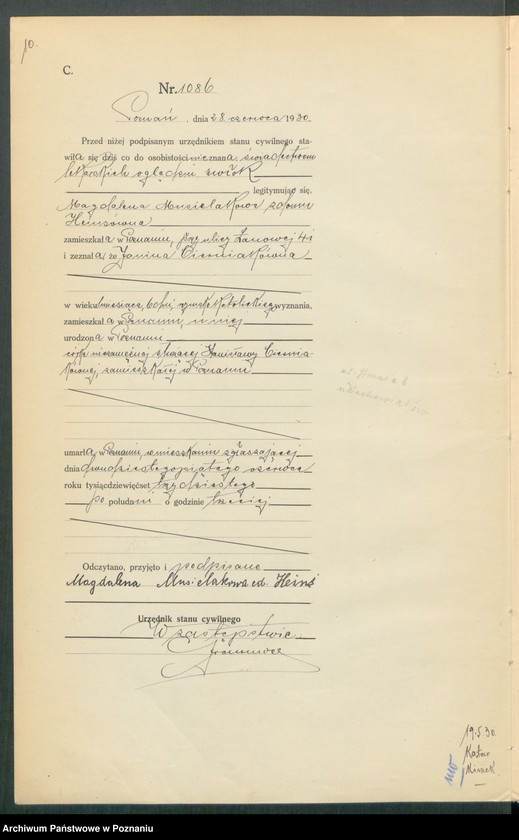 10.
C.
Nr. 1086
Poznań, dnia 28 czerwca 1930.
Przed niżej podpisanym urzędnikiem stanu cywilnego sta-
wiła się dziś co do osobistości nieznana, świadectwem
lekarskich oględzin zwłok
legitymując się.
Magdalena Musielakowa zodomu
Heinsówna
zamieszkała w Poznaniu, przy ulicy Łanowej 4
i zeznała że Janina Cierniakówna
w wieku miesiąca, 6 dni, rzymskokatolickiego wyznania,
zamieszkała w Poznaniu, u niej
urodzona w Poznaniu
córka niezamężnej służącej Stanisławy Ciernia-
kównej, zamieszkałej w Poznaniu
umarła w Poznaniu, w mieszkaniu zgłaszającej
dnia dwudziestegopiątego czerwca
roku tysiącdziewięćset trzydziestego
po południu o godzinie trzeciej
Odczytano, przyjęto i podpisano
Magdalena Musielakowa Heins
Urzędnik stanu cywilnego
W zastępstwie
19.5.30
Archiwum Państwowe w Poznaniu